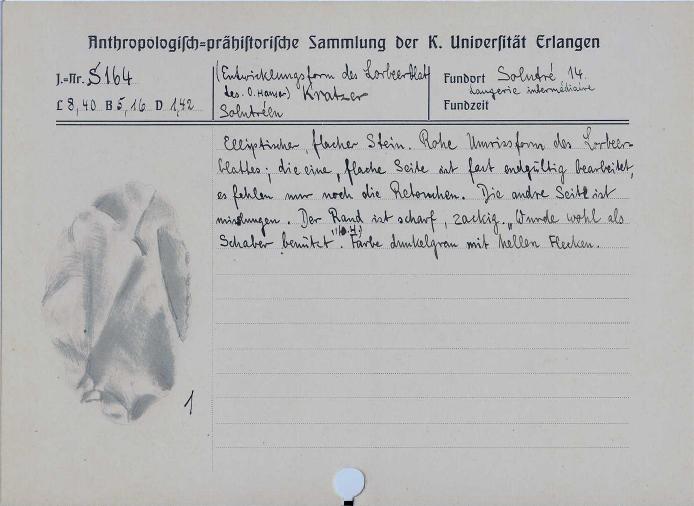 Anthropologisch=prähistorische Sammlung der K. Universität Erlangen
J.=Nr. S164
L 8,40 B 5,16 D 1,42
(Entwicklungsform des Lorbeerblatt
des. O. Hauser) Kratzer
Solutréen
Fundort Solutré 14.
Laugerie intermédiaire
Fundzeit
Elliptischer, flacher Stein. Rohe Umrissform des Lorbeer-
blattes; die eine, flache Seite ist fast endgültig bearbeitet,
es fehlen nur noch die Retouchen. Die andre Seite ist
misslungen. Der Rand ist scharf, zackig. „Wurde wohl als
Schaber benützt". (O.H.) Farbe dunkelgrau mit hellen Flecken.
1